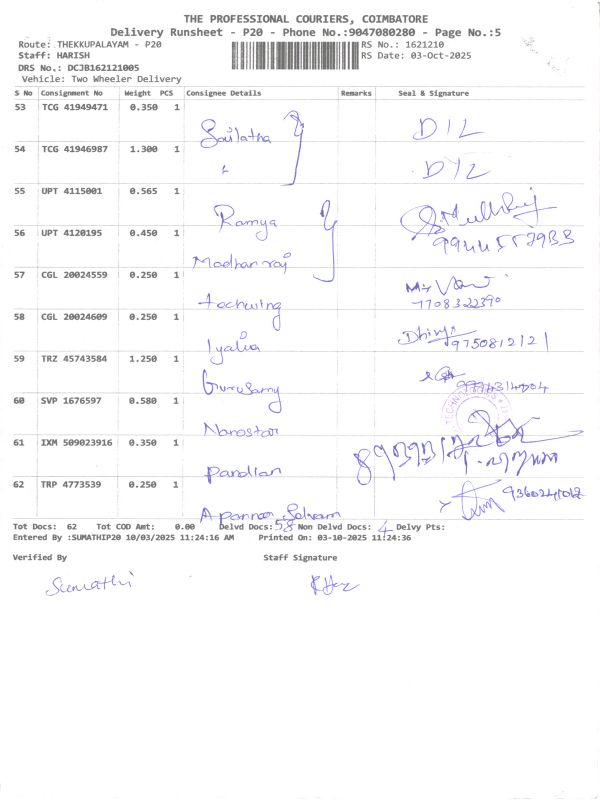 THE PROFESSIONAL COURIERS, COIMBATORE
Delivery Runsheet - P20 - Phone No.:9047080280 - Page No.:5
Route: THEKKUPALAYAM - P20 RS No.: 1621210
Staff: HARISH RS Date: 03-Oct-2025
DRS No.: DCJB162121005
Vehicle: Two Wheeler Delivery
S No Consignment No Weight PCS Consignee Details Remarks Seal & Signature
53 TCG 41949471 0.350 1
Sailatha DIL
54 TCG 41946987 1.300 1
" DYL
55 UPT 4115001 0.565 1
Ramya
56 UPT 4120195 0.450 1
Madhan raj
57 CGL 20024559 0.250 1
7708322390
58 CGL 20024609 0.250 1
Dhivya
9750812121
59 TRZ 45743584 1.250 1
Gurusamy
60 SVP 1676597 0.580 1
Nanostar
61 IXM 509023916 0.350 1
Pandian
62 TRP 4773539 0.250 1
Tot Docs: 62 Tot COD Amt: 0.00 Delvd Docs: 58 Non Delvd Docs: 4 Delvy Pts:
Entered By :SUMATHIP20 10/03/2025 11:24:16 AM Printed On: 03-10-2025 11:24:36
Verified By Staff Signature
Sumathi